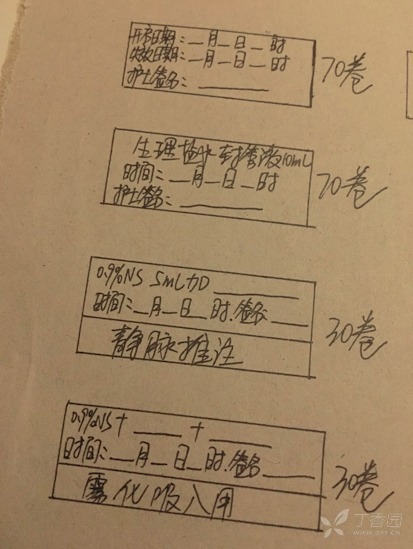 开启日期:__月__日__时
失效日期:__月__日__时
护士签名:______
70卷
生理盐水封管液10mL
时间:__月__日__时
护士签名:______
70卷
0.9%NS 5mL加______
时间:__月__日__时.签名:____
静脉推注
30卷
0.9%NS+____+______
时间:__月__日__时.签名____
雾化吸入用
30卷
丁香园
www.dxy.cn